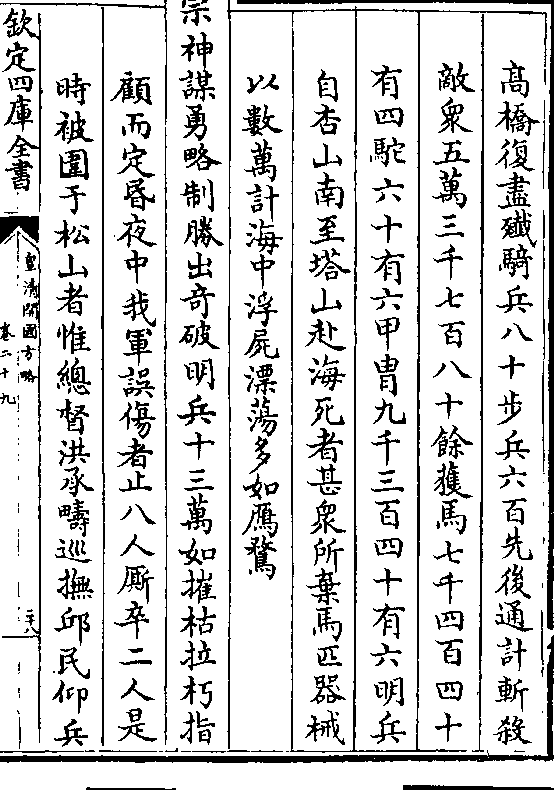 高橋復盡殱騎兵八十步兵六百先後通計斬殺
敵衆五萬三千七百八十餘獲馬七千四百四十
有四駝六十有六甲胄九千三百四十有六明兵
自杏山南至塔山赴海死者甚衆所棄馬匹器械
以數萬計海中浮屍漂蕩多如鴈鶩
宗神謀勇略制勝出奇破明兵十三萬如摧枯拉朽指
顧而定昏夜中我軍誤傷者止八人厮卒二人是
時被圍于松山者惟總督洪承疇巡撫邱民仰兵
欽定四庫全書
皇清開國方略
卷二十九
二十八